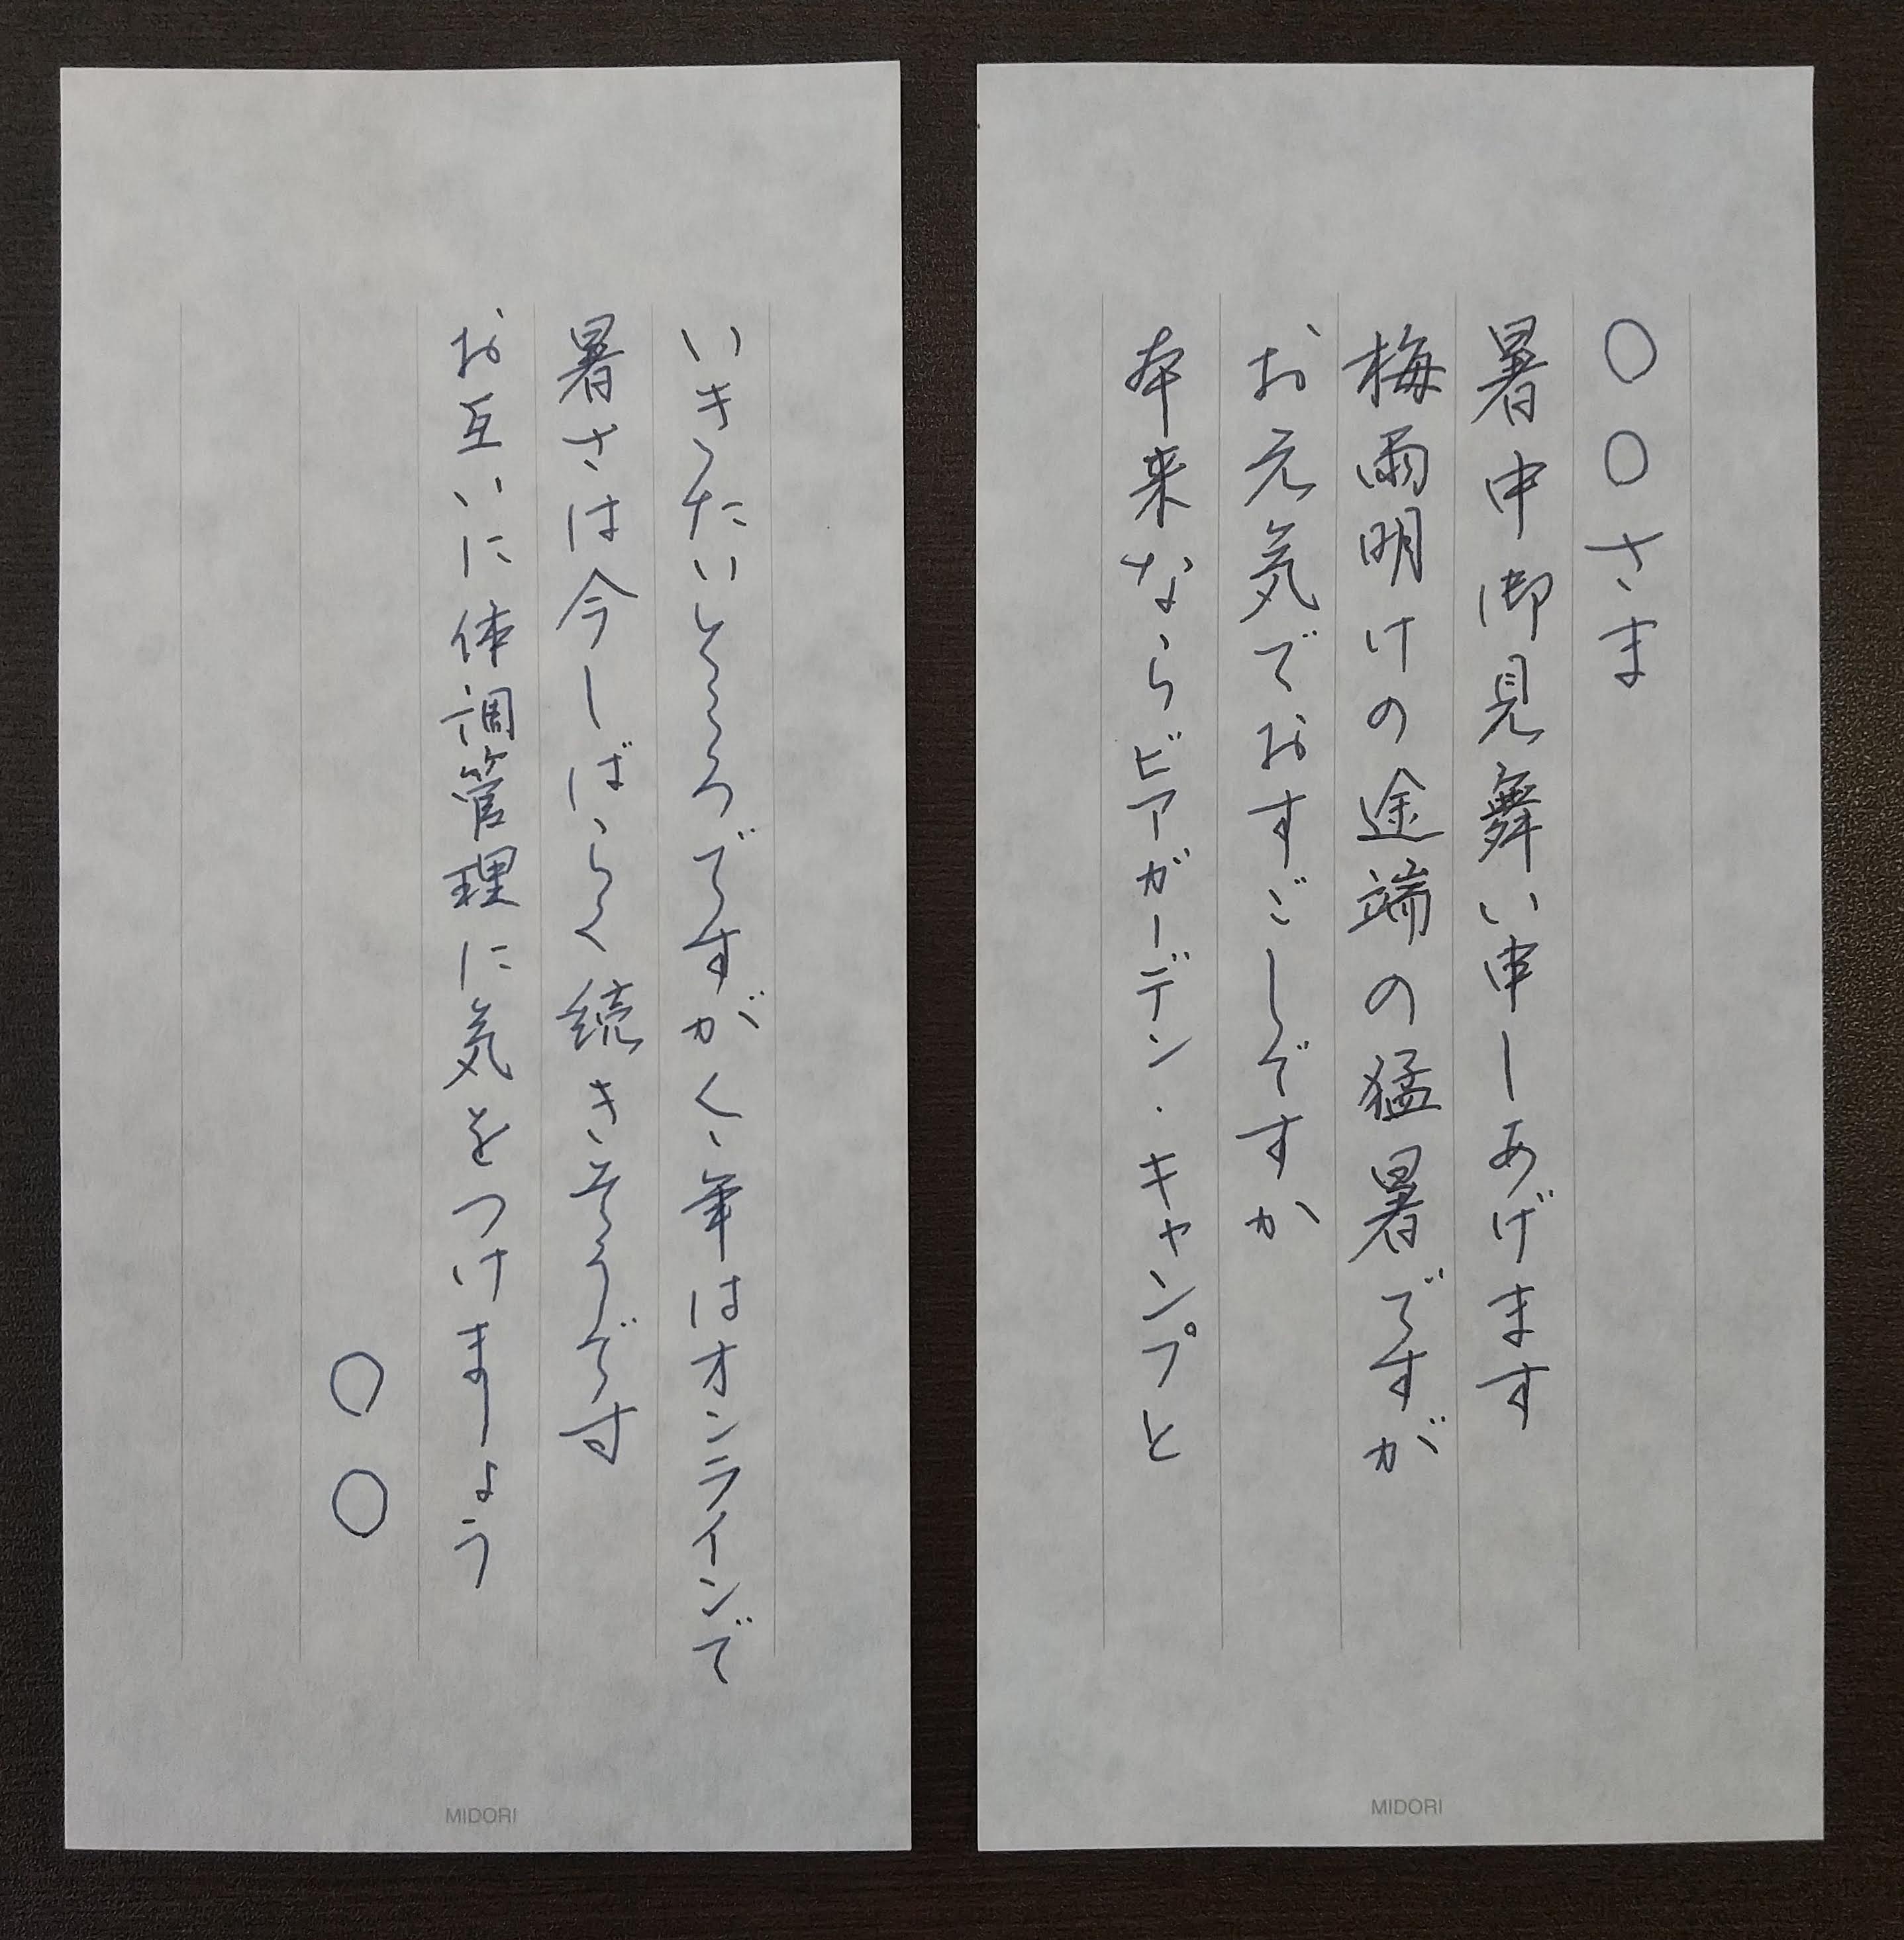 ○○さま
暑中御見舞い申しあげます
梅雨明けの途端の猛暑ですが
お元気でおすごしですか
本来ならビアガーデン・キャンプと
MIDORI
いきたいところですが、今年はオンラインで
暑さは今しばらく続きそうです
お互いに体調管理に気をつけましょう
○○
MIDORI